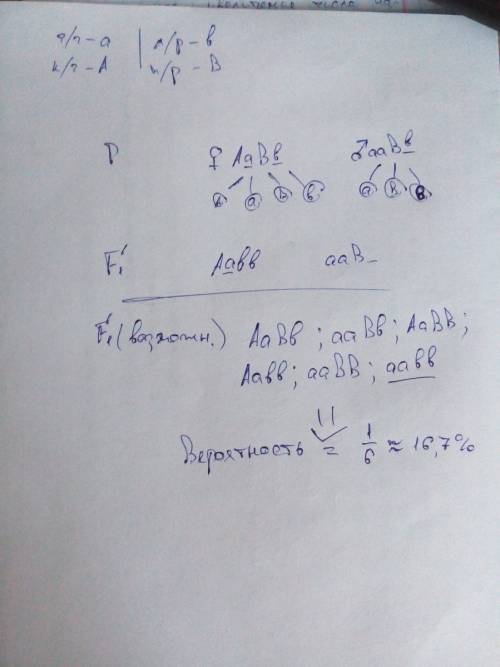 г/г - а | л/р - в
к/г - А | п/р - В
P ♀ АаВв ♂ ааВв
А а В в а В в
F₁' Аавв ааВ_
F₁' (возможн.) АаВв ; ааВв ; АаВВ ;
Аавв ; ааВВ ; аавв
Вероятность = 1/6 ≈ 16,7%